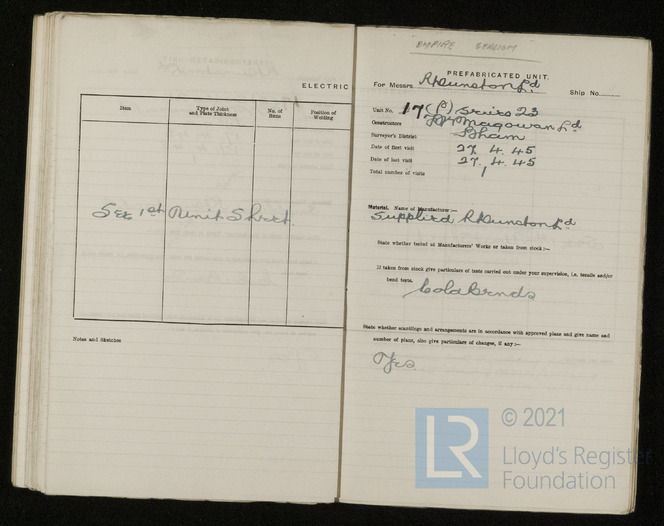 ELECTRIC
Item
Type of Joint
and Plate Thickness
No. of
Runs
Position of
Welding
See 1st Unit Sheet.
Notes and Sketches
EMPIRE
PREFABRICATED UNIT.
For Messrs. R Dunston Ld Ship No.
Unit No. 17 (P) Series 23
Constructors Magowan Ld
Surveyor's District B'ham
Date of first visit 27. 4. 45
Date of last visit 27. 4. 45
Total number of visits 1
Material. Name of Manufacturer:—
Supplied R Dunston Ld
State whether tested at Manufacturers' Works or taken from stock:—
If taken from stock give particulars of tests carried out under your supervision, i.e. tensile and/or
bend tests. Cold Bends
State whether scantlings and arrangements are in accordance with approved plans and give name and
number of plans, also give particulars of changes, if any:—
Yes
LR
© 2021
Lloyd's Register
Foundation